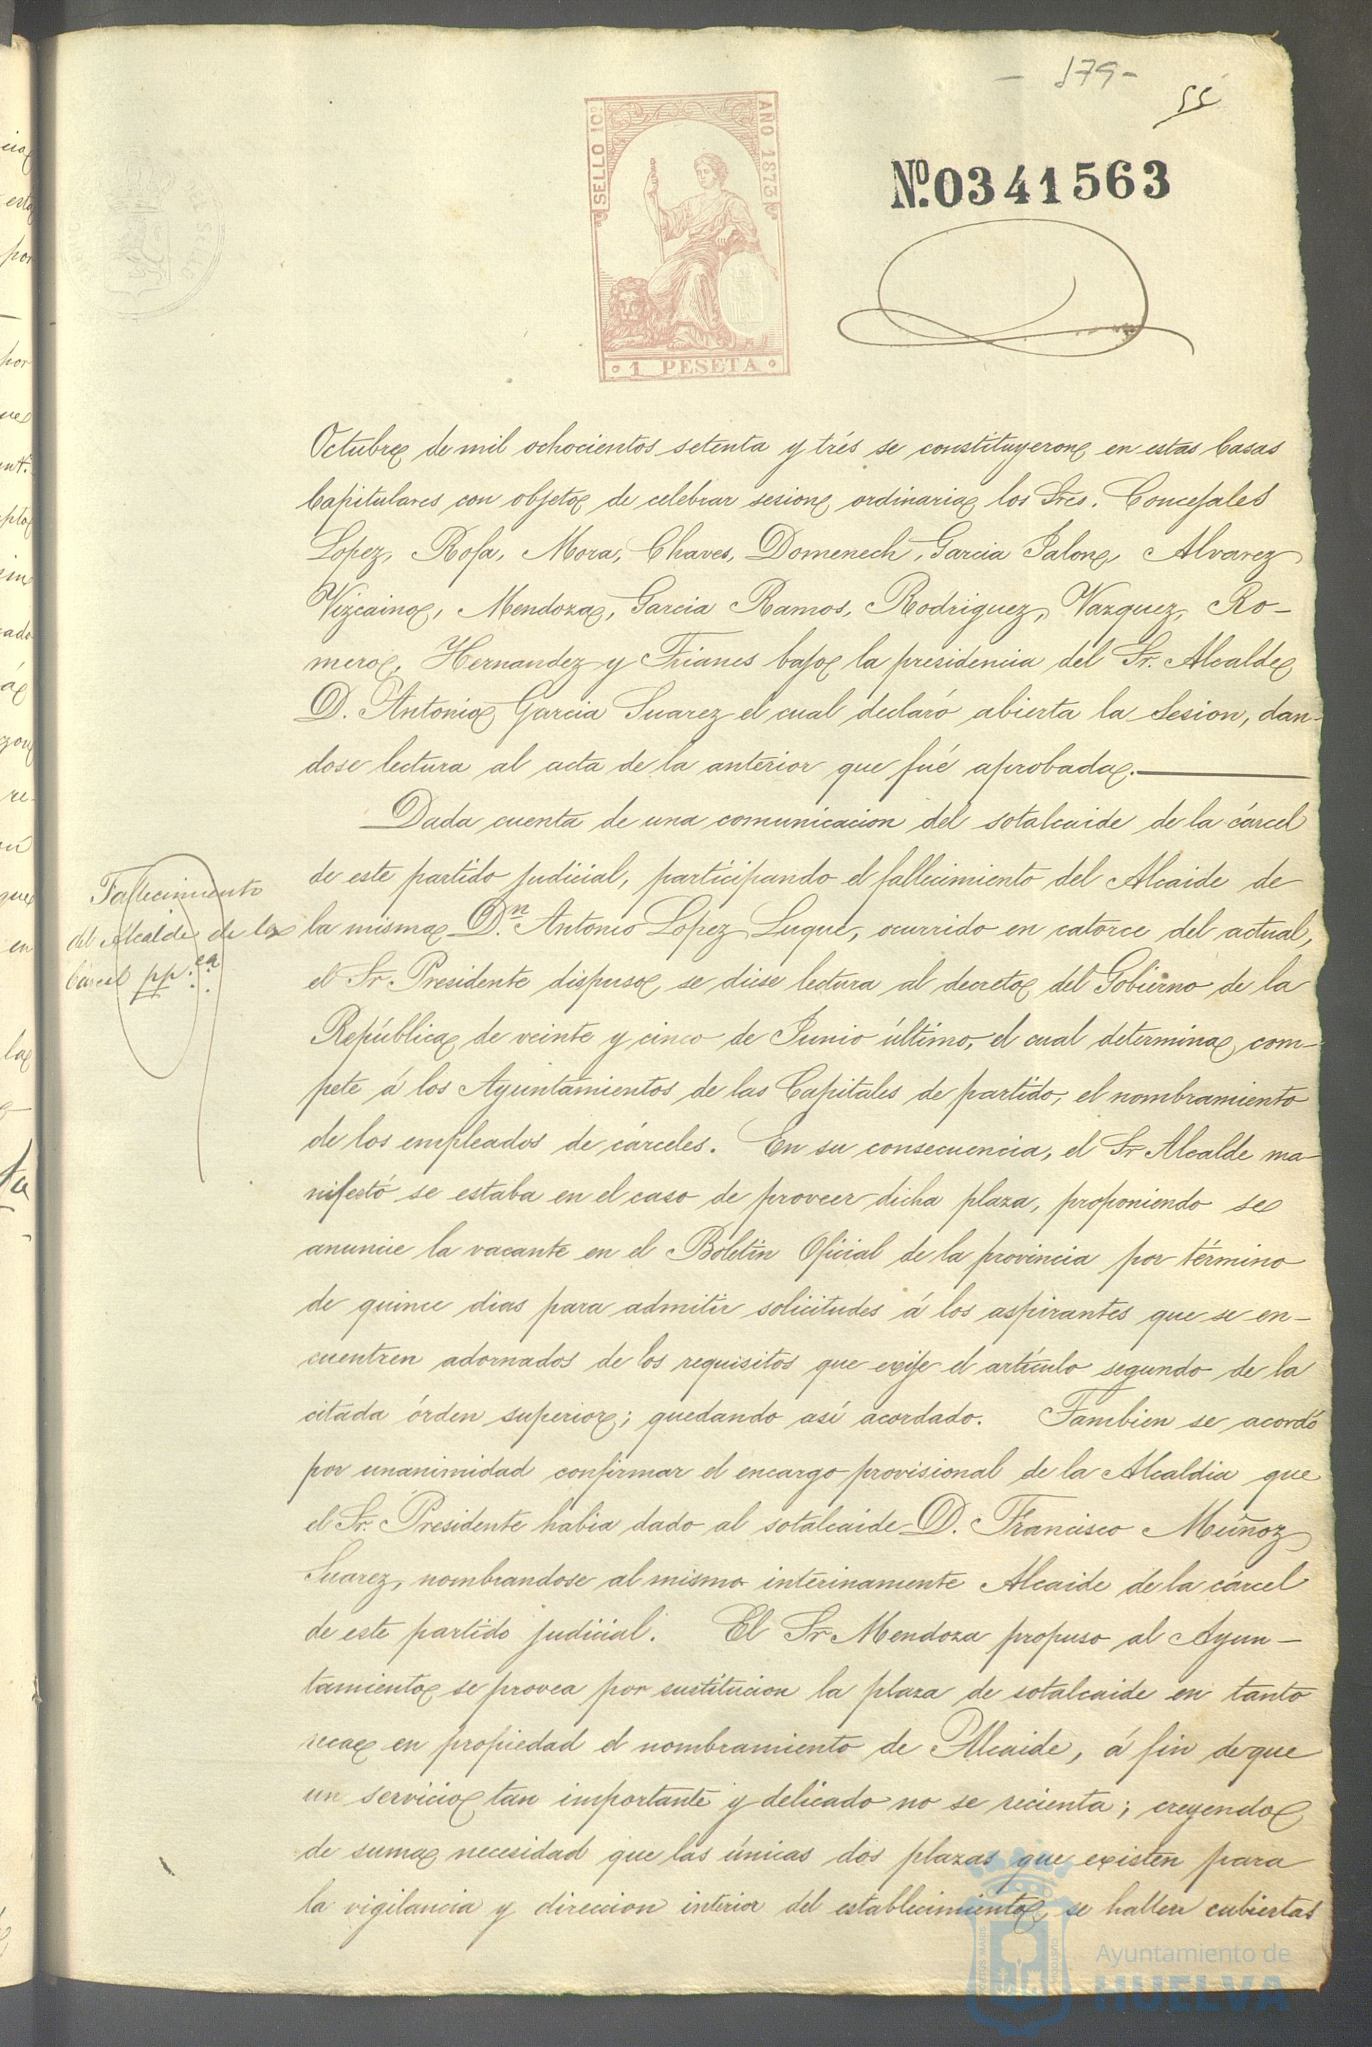 - 179 -
55
SELLO 10º
AÑO 1873
1 PESETA
Nº.0341563
Octubre de mil ochocientos setenta y trés se constituyeron en estas Casas
Capitulares con objeto de celebrar sesion ordinaria los Sres. Concejales
Lopez, Rofa, Mora, Chaves, Domenech, Garcia Jalon, Alvarez
Vizcaino, Mendoza, Garcia Ramos, Rodriguez, Vazquez, Ro-
mero, Hernandez y Trianes bajo la presidencia del Sr. Alcalde
D. Antonio Garcia Suarez el cual declaró abierta la Sesion, dan-
dose lectura al acta de la anterior que fué aprobada.
Dada cuenta de una comunicacion del sotalcaide de la cárcel
de este partido judicial, participando el fallecimiento del Alcaide de
la misma Dn. Antonio Lopez Luque, ocurrido en catorce del actual,
el Sr. Presidente dispuso se diese lectura al decreto del Gobierno de la
República de veinte y cinco de Junio último, el cual determina com-
pete á los Ayuntamientos de las Capitales de partido, el nombramiento
de los empleados de cárceles. En su consecuencia, el Sr Alcalde ma-
nifestó se estaba en el caso de proveer dicha plaza, proponiendo se
anuncie la vacante en el Boletin Oficial de la provincia por término
de quince dias para admitir solicitudes á los aspirantes que se en-
cuentren adornados de los requisitos que exije el artículo segundo de la
citada órden superior; quedando así acordado. Tambien se acordó
por unanimidad confirmar el encargo provisional de la Alcaldia que
el Sr. Presidente habia dado al sotalcaide D. Francisco Muñoz
Suarez, nombrandose al mismo interinamente Alcaide de la cárcel
de este partido judicial. El Sr Mendoza propuso al Ayun-
tamiento se provea por sustitucion la plaza de sotalcaide en tanto
recae en propiedad el nombramiento de Alcaide, á fin de que
un servicio tan importante y delicado no se recienta; creyendo
de suma necesidad que las únicas dos plazas que existen para
la vigilancia y direccion interior del establecimiento se hallen cubiertas
Fallecimiento
del Alcaide de la
Cárcel pp.ca
Ayuntamiento de
HUELVA